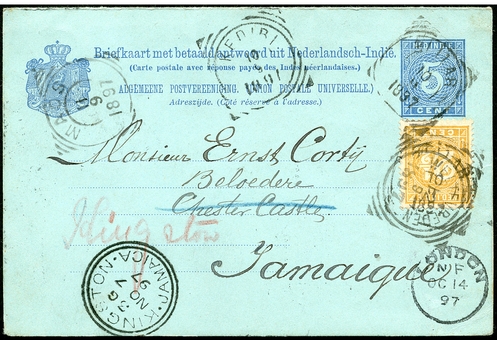 Briefkaart met betaald antwoord uit Nederlandsch-Indië.
(Carte postale avec réponse payée des Indes Néerlandaises.)
ALGEMEENE POSTVEREENIGING. (UNION POSTALE UNIVERSELLE.)
Adreszijde. (Côté réservé à l'adresse.)
5
CENT
KEDIRI
1897
Monsieur Ernst Cortÿ
Beloedere
Chester Castle
Kingston
Jamaique
KINGSTON · JAMAICA
NO 3
97
LONDON
OC 14
97